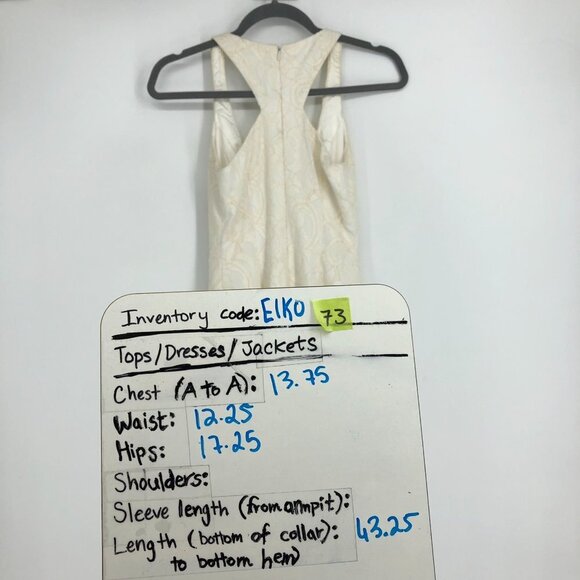 Inventory code: EIKO 73
Tops/Dresses/Jackets
Chest (A to A): 13.75
Waist: 12.25
Hips: 17.25
Shoulders:
Sleeve length (from armpit):
Length (bottom of collar): 43.25
to bottom hem)